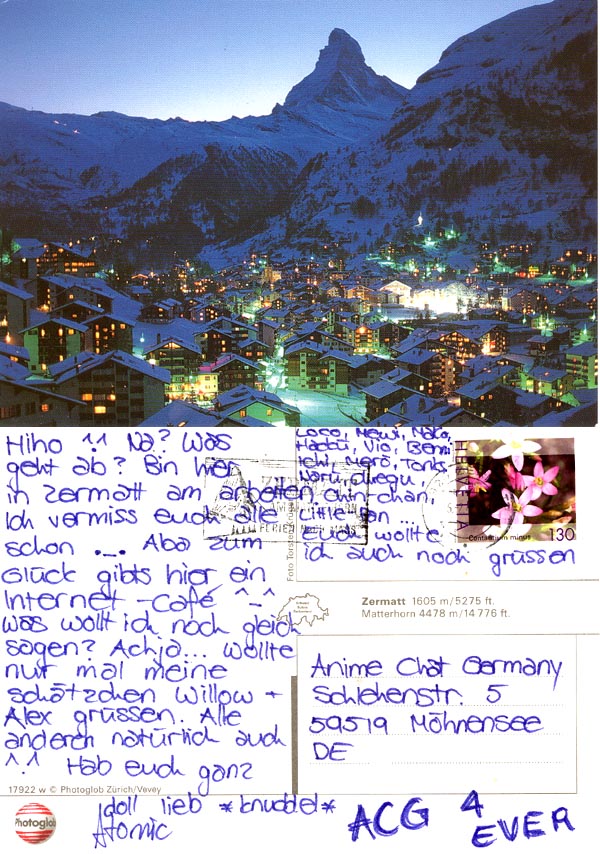 Hiho ^.^ Na? Was
geht ab? Bin hier
in Zermatt am arbeiten
Ich vermiss euch alle
schon ._. Aba zum
Glück gibts hier ein
Internet-Café ^_^
Was wollt ich noch gleich
sagen? Achja... wollte
nur mal meine
schätzchen Willow +
Alex grüssen. Alle
anderen natürlich auch
^.^ Hab euch ganz
doll lieb *knuddel*
Atomic
Vio,
Ichi, Mero,
chin-chan,
Euch wollte
ich auch noch grüssen
HELVETIA
Centaurium minus 130
FERIEN
Foto Torsten
Zermatt 1605 m/5275 ft.
Matterhorn 4478 m/14 776 ft.
Anime Chat Germany
Schlehenstr. 5
59519 Möhnesee
DE
17922 w © Photoglob Zürich/Vevey
Photoglob
ACG 4
EVER